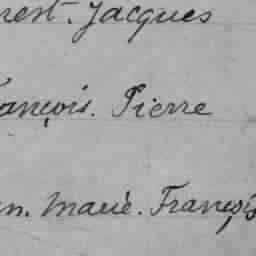 nest. Jacques
ançois. Pierre
n. Marie. François